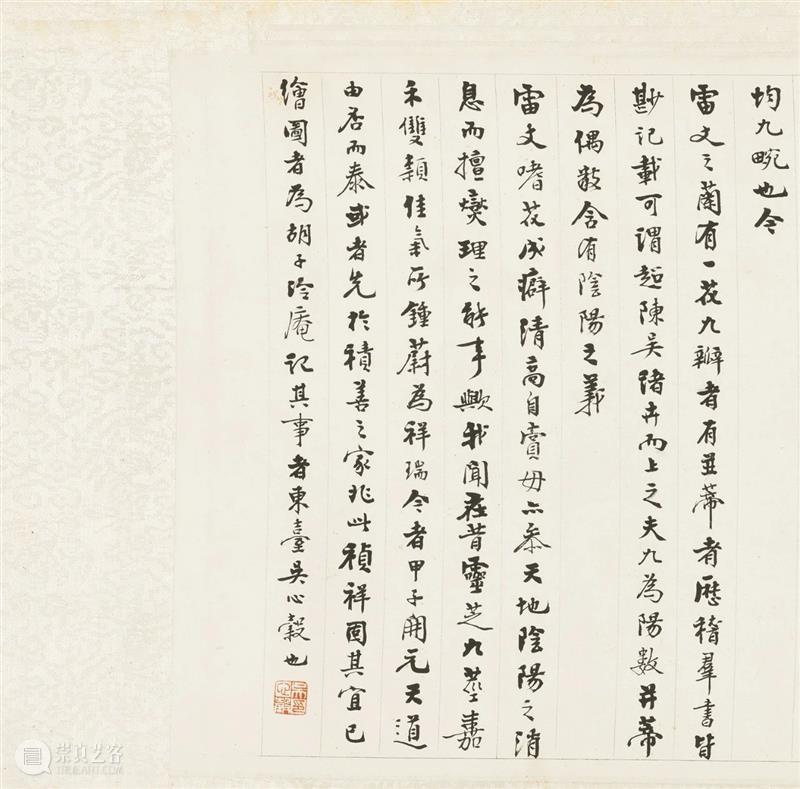 均九畹也今
雷文之蘭有一花九瓣者有並蒂者歷稽羣書皆
尠記載可謂超陳吳諸卉而上之夫九為陽數并蒂
為偶數含有陰陽之義
雷文嗜花成癖清高自賞毋亦參天地陰陽之消
息而擅爕理之能事歟我聞在昔靈芝九莖嘉
禾雙穎佳氣所鍾蔚為祥瑞今者甲子開元天道
由否而泰或者先於積善之家兆此禎祥固其宜已
繪圖者為胡子泠庵記其事者東臺吳心穀也
崇真艺客